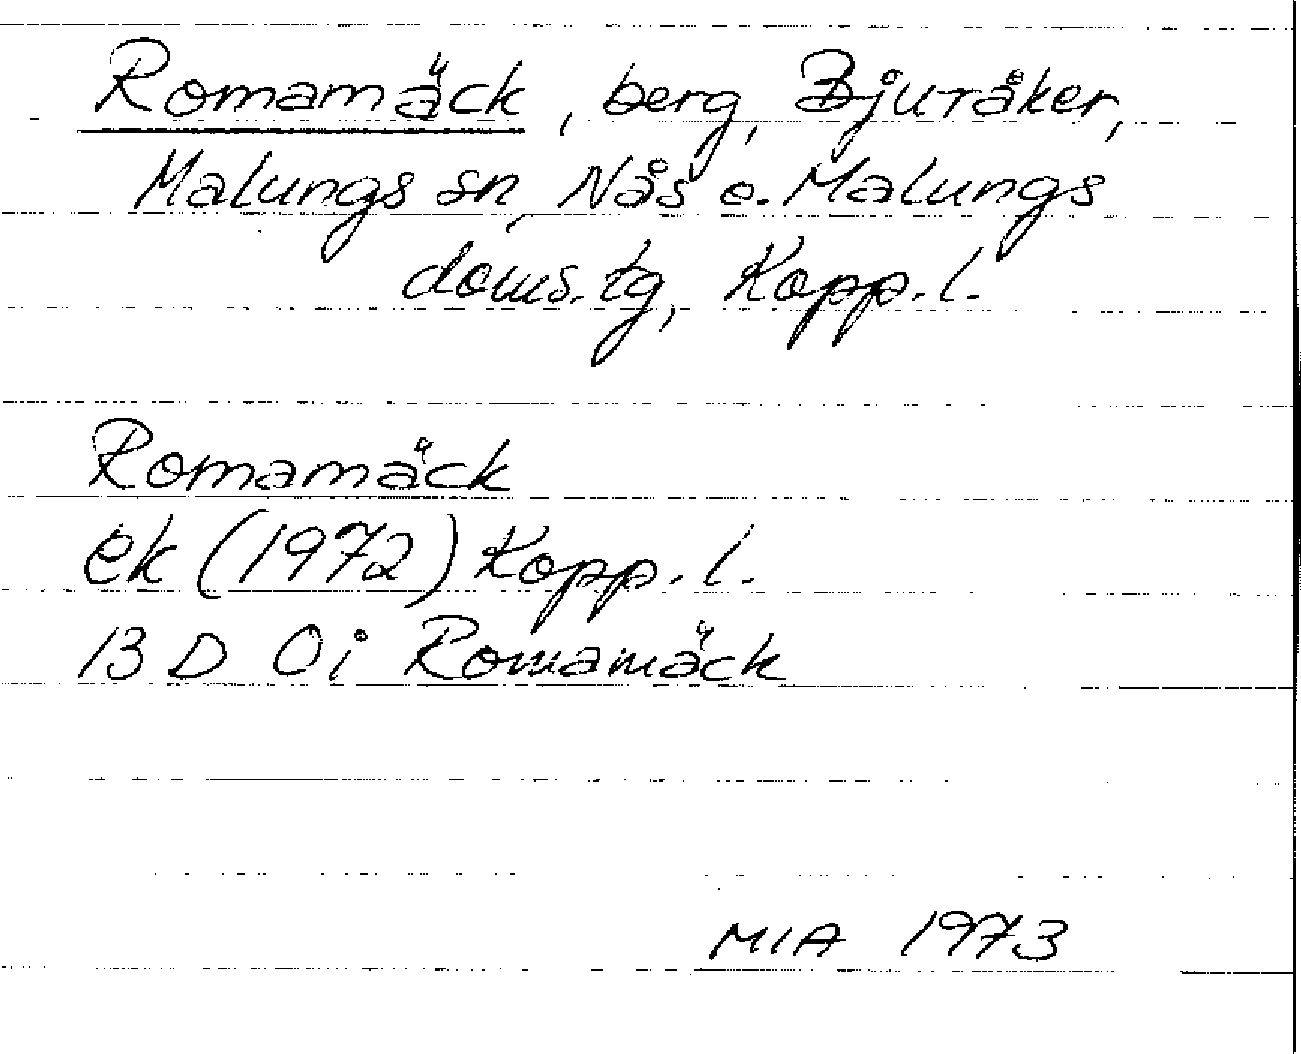 Romamäck, berg, Bjuråker,
Malungs sn, Nås o. Malungs
doms.tg, Kopp.l.
Romamäck
ek (1972) Kopp.l.
13 D 0i Romamäck
MIA 1973